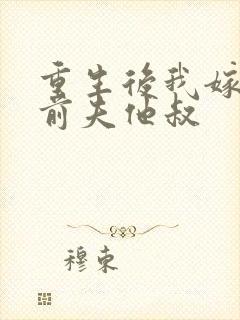 重生後我嫁
前夫他叔
穆東